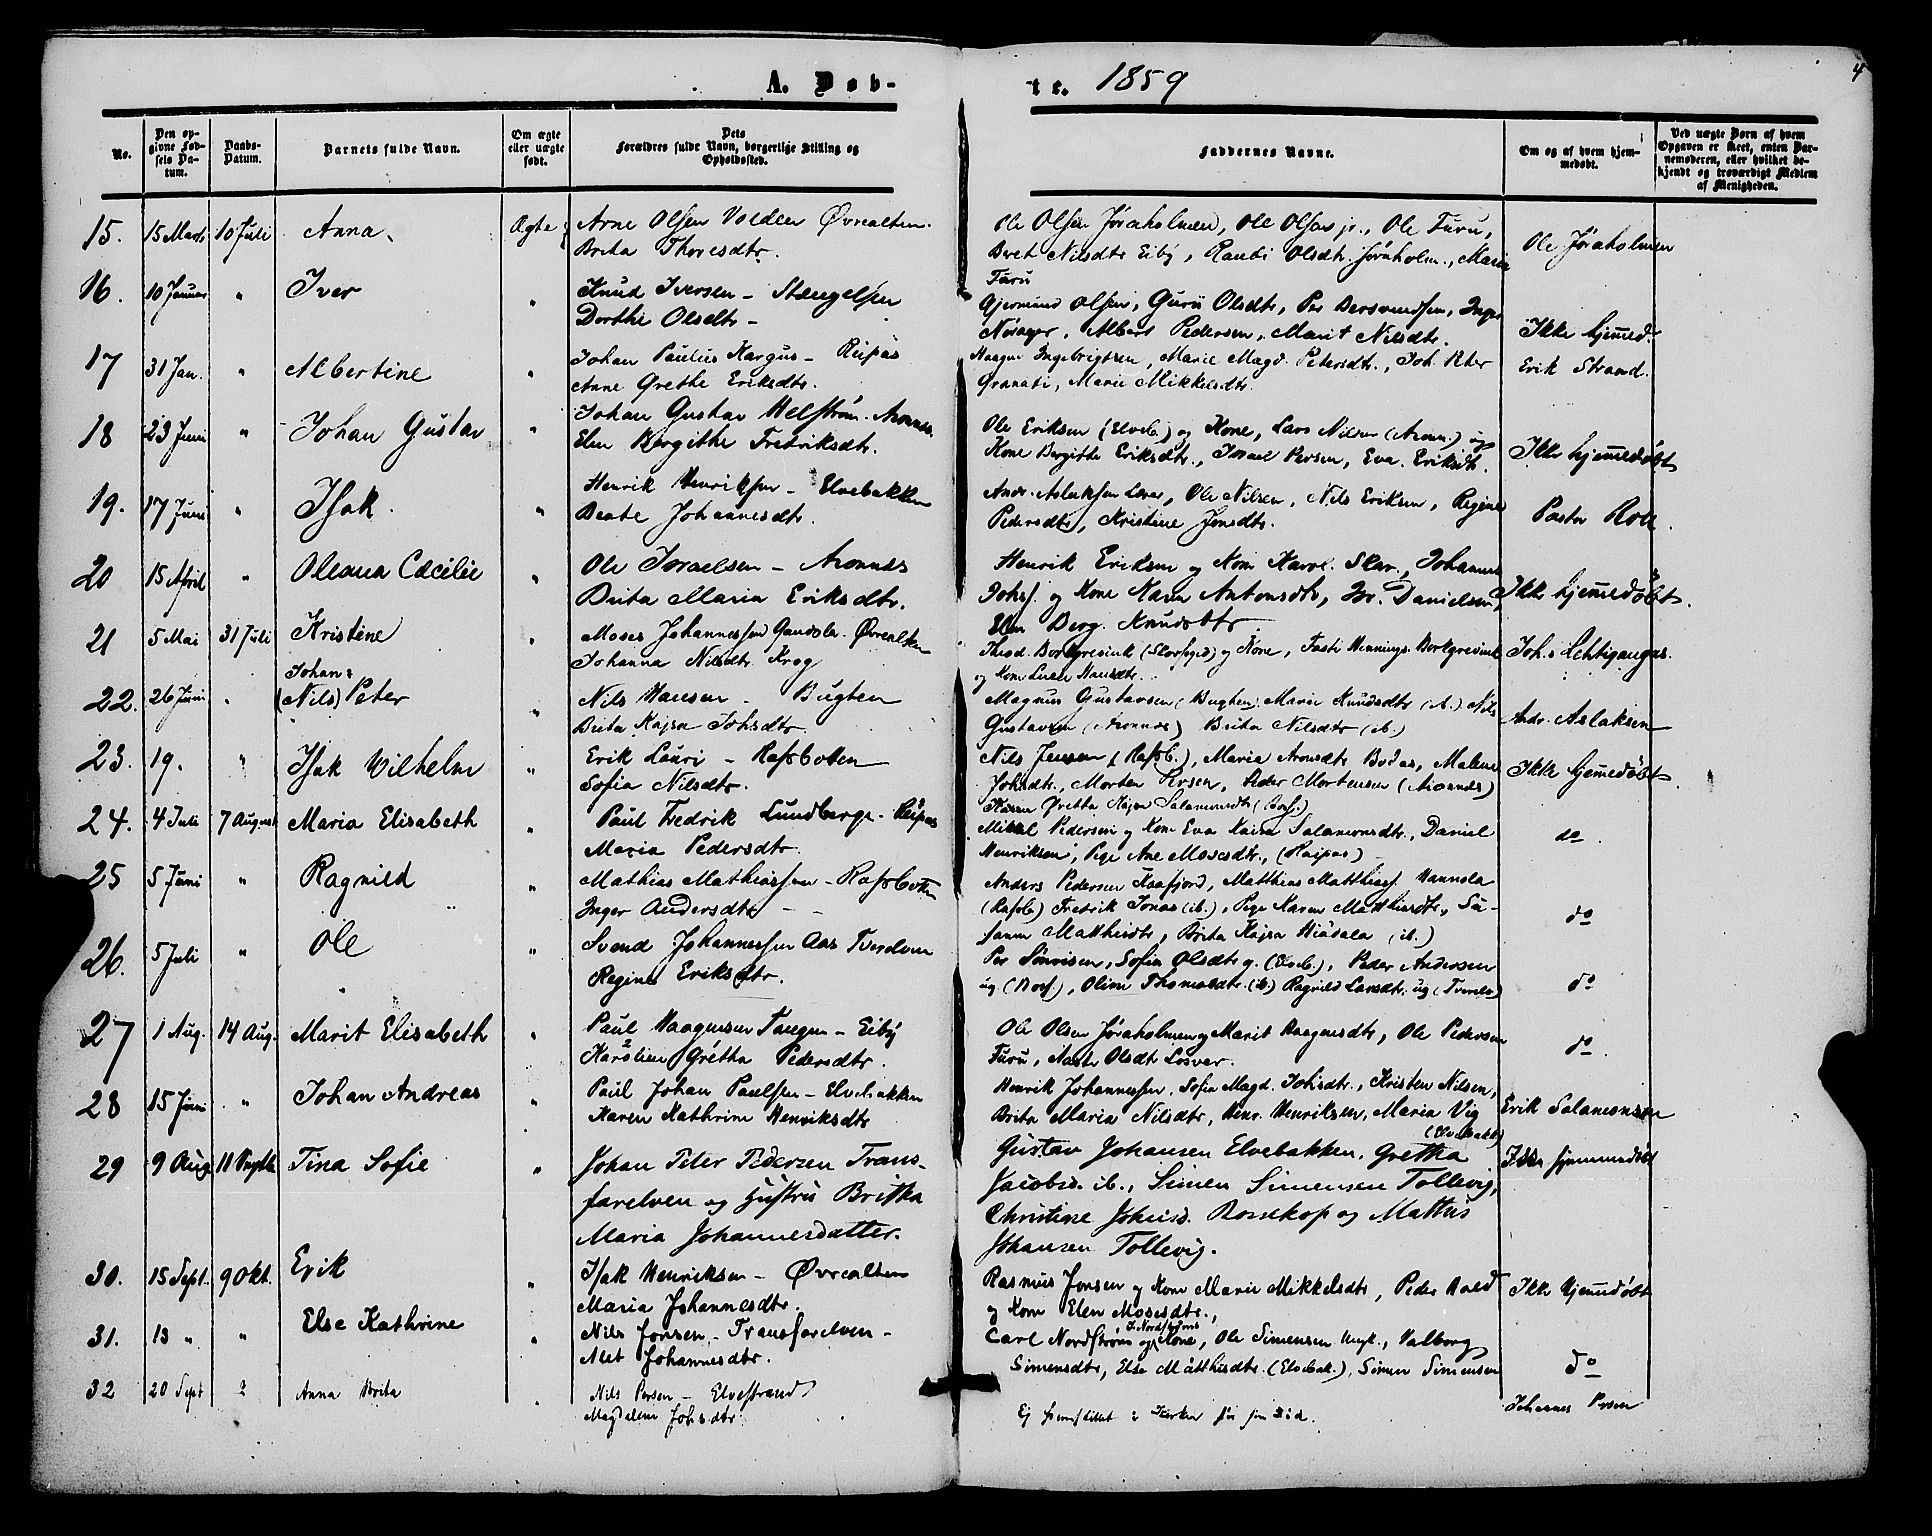 A. Døb- te. 1859
4
No.
Den opgivne Fødsels Datum.
Daabs-Datum.
Barnets fulde Navn.
Om ægte eller uægte født.
Dets Forældres fulde Navn, borgerlige Stilling og Opholdssted.
Faddernes Navne.
Om og af hvem hjemmedøbt.
Ved uægte Børn af hvem Opgaven er skeet, enten Barnemoderen, eller hvilket bekjendt og troværdigt Medlem af Menigheden.
15. 15 Marts 10 Juli Anna Ægte Arne Olsen Volden Øvrealten.
Brita Thoresdtr.
Ole Olsen Jøraholmen, Ole Olsen jr., Ole Furu,
Beret Nilsdtr Eiby, Olsdtr. Jøraholm., Maria
Furu
Ole Jøraholmen
16. 10 Januar " Iver " Knud Iversen – Stengelsen
Dorthe Olsdtr –
Gjermund Olsen, Guru Olsdtr, Per Bersvendsen, Inger
Norager, Albert Pedersen, Marit Nilsdtr.
Ikke hjemmed.
17 31 Jan. " Albertine " Johan Paulus Kargus – Reipas
Anne Grethe Eriksdtr.
Haagen Ingebrigtsen, Marie Magd. Petersdtr., Joh. Peter
Granati, Marie Mikkelsdtr.
Erik Strand.
18 23 Juni " Johan Gustav " Johan Gustav Helström. Aronnes.
Elen Bergithe Fredriksdtr.
Ole Eriksen (Elveb.) og Kone, Lars Nilsen (Aronn.) og
Kone Bergithe Eriksdtr., Israel Persen, Eva Eriksdtr.
Ikke hjemmedøbt
19. 17 Juni " Isak. " Henrik Henriksen – Elvebakken
Beate Johannesdtr.
Andr. Aslaksen, Ole Nilsen, Nils Eriksen, Regine
Pedersdtr, Kristine Jonsdtr.
Pastor
20 15 April " Oleana Cæcilie " Ole Israelsen – Aronnes
Brita Maria Eriksdtr.
Henrik Eriksen og Kone, Johannes
Johs. og Kone Karen Antonsdtr, Danielsen,
Elen Berg. Knudsdtr
Ikke hjemmedøbt.
21 5 Mai 31 Juli Kristine " Moses Johannessen Øvrealten
Johanna Nilsdtr. Krog
Theod. Borkgrevink (Skorfoged) og Kone, Henning Borkgrevink
og Kone Hansdtr.
22. 26 Juni " Johan
(Nils) Peter " Nils Hansen – Bugten
Brita Kajsa Johsdtr
Magnus Gustavsen (Bugten), Marie Knudsdtr (ib.) Nils
Gustavsen (Aronnes) Brita Nilsdtr (ib.)
Andr. Aslaksen
23. 19. " Isak Wilhelm " Erik Lauri – Rafsbotten
Sofia Nilsdtr.
Nils Jensen (Rafsb.), Maria Aronsdtr Malene
Johsdtr., Morten Persen, Peder Mortensen (Aronnes)
Ikke hjemmedøbt
24. 4 Juli 7 August Maria Elisabeth " Paul Fredrik Lundberge – Reipas
Maria Pedersdtr.
Gretha Kajsa Salamonsdtr
Mikkel Pedersen og Kone Eva Kaisa Salamonsdtr., Daniel
Henriksen, Pige Ane Mosesdtr., (Raipas)
do.
25 5 Juni " Ragnild " Mathias Mathiassen – Rafsbotten
Inger Andersdtr –
Anders Pedersen Kaafjord, Matthias Matthiass. Hannola
(Rafsb) Fredrik Jonas (ib.), Pige Karen Matthiesdtr, Su-
sanna Matthisdtr, Brita Kajsa Hiedala (ib.)
do
26. 5 Juli " Ole " Svend Johannessen Aas Tverelven
Regine Eriksdtr.
Per Simonsen, Sofia Olsdtr g. (Elveb.), Peder Andersen
ug (Bos), Oline Thomasdtr. (ib) Ragnild Larsdtr. ug (Tverelv)
do
27 1 Aug. 14 Aug. Marit Elisabeth " Paul Haagensen Tangen – Eiby
Karolien Gretha Pedersdtr.
Ole Olsen Jøraholmen og Marit Haagensdtr, Ole Pedersen
Furu, Marte Olsdtr Losvar.
do.
28 15 Juni " Johan Andreas " Paul Johan Paulsen – Elvebakken
Karen Kathrine Henriksdtr
Henrik Johannessen, Sofie Magd. Johsdtr., Kristen Nilsen,
Brita Maria Nilsdtr, Henr. Henriksen, Maria Vig
(Elvebakk)
Erik Salamonsen
29 9 Aug 11 Septbr Tina Sofie " Johan Peter Pedersen Trans-
farelven og Hustru Britha
Maria Johannesdatter.
Gustav Johansen Elvebakken, Gretha
Jacobsd. ib., Simen Simensen Tollevig,
Christine Johnsd. Bossekop og Mathis
Johansen Tollevig.
Ikke hjemmedøbt
30. 15 Sept. 9 Okt. Erik " Isak Henriksen – Øvrealten
Maria Johannesdtr.
Rasmus Jonsen og Kone Marie Mikkelsdtr, Peder
og Kone Elen Mosesdtr.,
Ikke hjemmedøbt
31. 13 " " Else Kathrine " Nils Jonsen – Transfarelven –
Alet Johannesdtr.
Carl Nordstrøm og J. Nordstrøms Kone, Ole Simensen Ungk., Valborg
Simensdtr, Else Matthisdtr (Elvebak.), Simen Simensen
do
32 20 Sept Anna Brita " Nils Persen – Elvestrand
Magdalene Johsdtr.
Ej fremstillet i Kirken før sin Død.
Johannes Persen